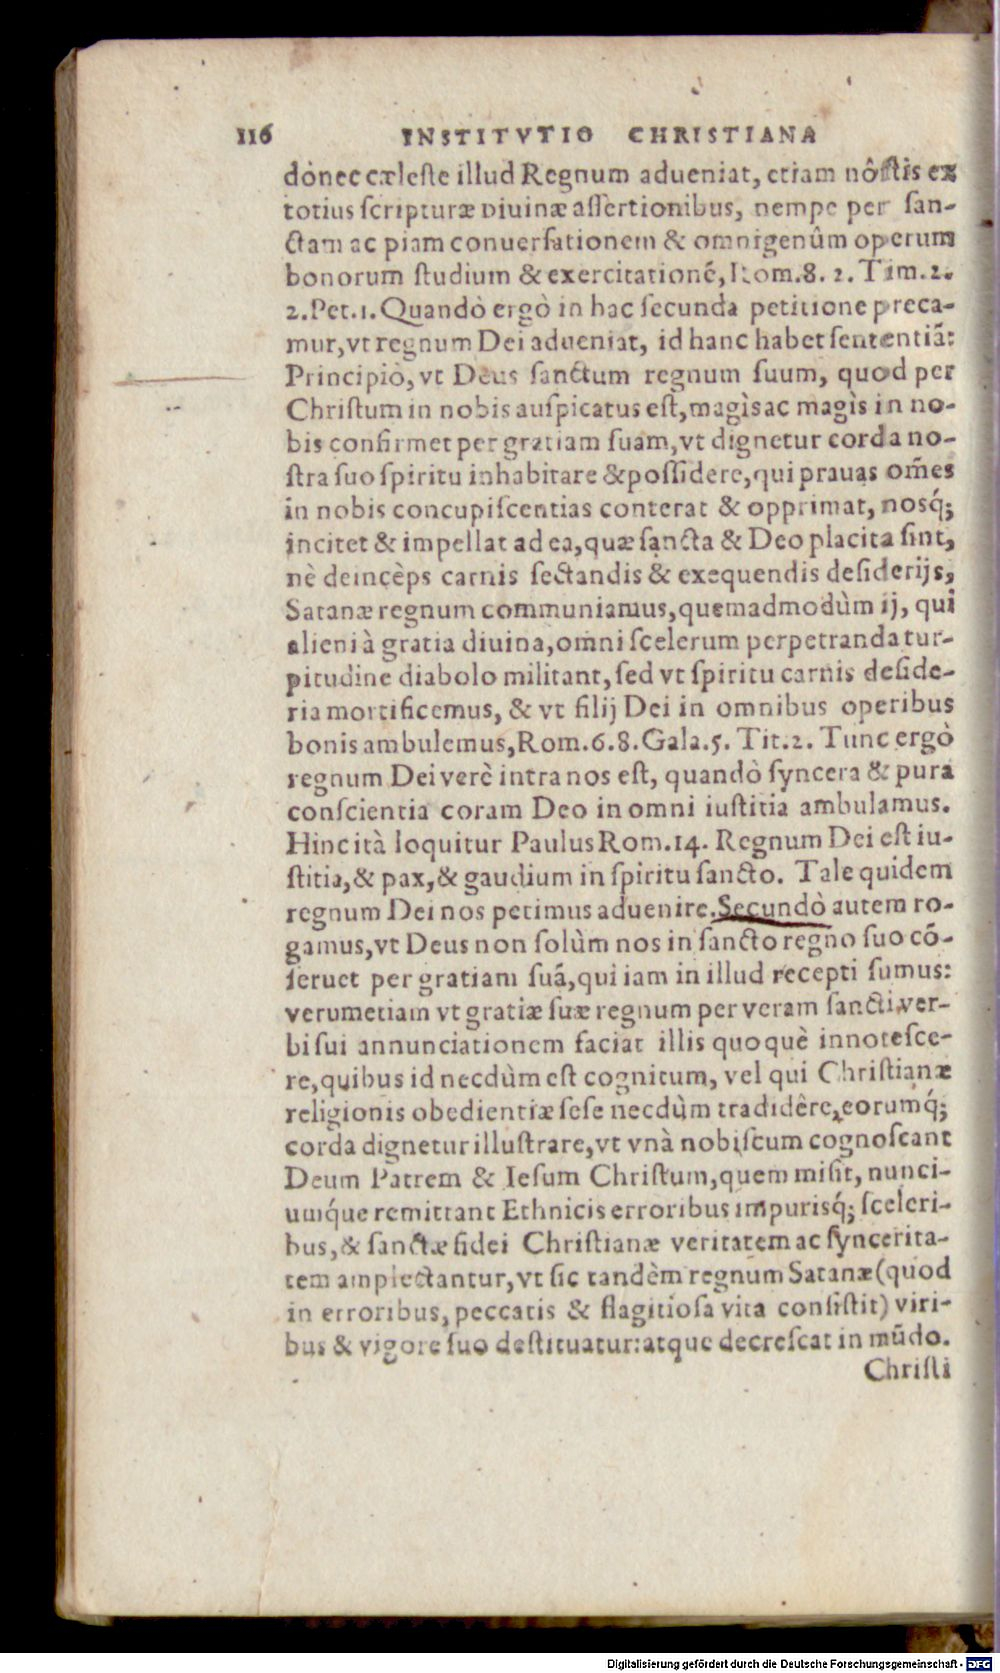 116 INSTITVTIO CHRISTIANA
dónec cæleste illud Regnum adueniat, etiam nôstis ex
totius scripturæ diuinæ assertionibus, nempe per san-
ctam ac piam conuersationem & omnigenûm operum
bonorum studium & exercitationé, Rom.8. 2. Tim.2.
2.Pet.1. Quandò ergò in hac secunda petitione preca-
mur, vt regnum Dei adueniat, id hanc habet sententiã:
Principiò, vt Deus sanctum regnum suum, quod per
Christum in nobis auspicatus est, magìs ac magìs in no-
bis confirmet per gratiam suam, vt dignetur corda no-
stra suo spiritu inhabitare & possidere, qui prauas om̃es
in nobis concupiscentias conterat & opprimat, nosq́;
incitet & impellat ad ea, quæ sancta & Deo placita sint,
nè deincèps carnis sectandis & exequendis desiderijs,
Satanæ regnum communiamus, quemadmodùm ij, qui
alieni à gratia diuina, omni scelerum perpetranda tur-
pitudine diabolo militant, sed vt spiritu carnis deside-
ria mortificemus, & vt filij Dei in omnibus operibus
bonis ambulemus, Rom.6.8. Gala.5. Tit.2. Tunc ergò
regnum Dei verè intra nos est, quandò syncera & pura
conscientia coram Deo in omni iustitia ambulamus.
Hinc ità loquitur Paulus Rom.14. Regnum Dei est iu-
stitia, & pax, & gaudium in spiritu sancto. Tale quidem
regnum Dei nos petimus aduenire. Secundò autem ro-
gamus, vt Deus non solùm nos in sancto regno suo cõ-
seruet per gratiam suã, qui iam in illud recepti sumus:
verumetiam vt gratiæ suæ regnum per veram sancti ver-
bi sui annunciationem faciat illis quoquè innotesce-
re, quibus id necdùm est cognitum, vel qui Christianæ
religionis obedientiæ sese necdùm tradidêre, eorumq́;
corda dignetur illustrare, vt vnà nobiscum cognoscant
Deum Patrem & Iesum Christum, quem misit, nunci-
umq́ue remittant Ethnicis erroribus impurisq́; sceleri-
bus, & sanctæ fidei Christianæ veritatem ac syncerita-
tem amplectantur, vt sic tandèm regnum Satanæ (quod
in erroribus, peccatis & flagitiosa vita consistit) viri-
bus & vigore suo destituatur: atque decrescat in mũdo.
Christi
Digitalisierung gefördert durch die Deutsche Forschungsgemeinschaft - DFG